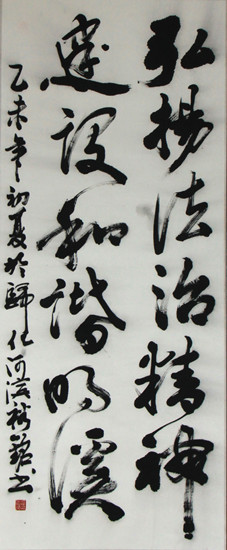 弘揚法治精神
建设和谐明溪
乙未年初夏於歸化河滨